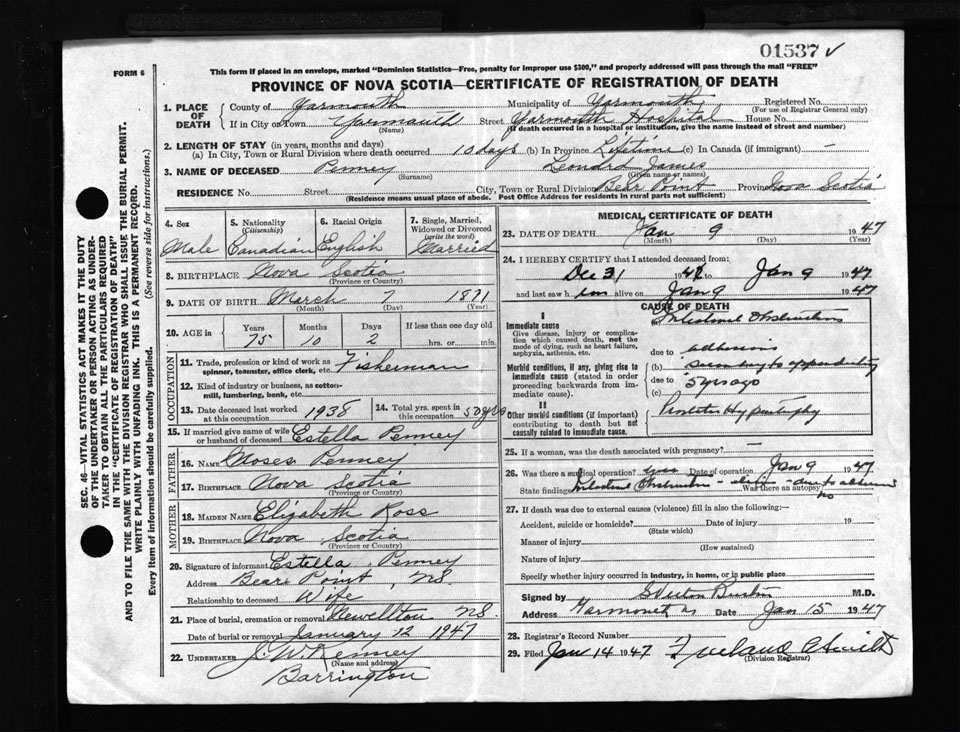 01537 ✓
FORM 6
This form if placed in an envelope, marked "Dominion Statistics—Free, penalty for improper use $300," and properly addressed will pass through the mail "FREE"
PROVINCE OF NOVA SCOTIA—CERTIFICATE OF REGISTRATION OF DEATH
SEC. 46—VITAL STATISTICS ACT MAKES IT THE DUTY
OF THE UNDERTAKER OR PERSON ACTING AS UNDER-
TAKER TO OBTAIN ALL THE PARTICULARS REQUIRED
IN THE "CERTIFICATE OF REGISTRATION OF DEATH"
AND TO FILE THE SAME WITH THE DIVISION REGISTRAR WHO SHALL ISSUE THE BURIAL PERMIT.
WRITE PLAINLY WITH UNFADING INK. THIS IS A PERMANENT RECORD.
Every item of information should be carefully supplied. (See reverse side for instructions.)
1. PLACE OF DEATH County of Yarmouth Municipality of Yarmouth Registered No.
(For use of Registrar General only)
If in City or Town Yarmouth Street Yarmouth Hospital House No.
(Name) (If death occurred in a hospital or institution, give the name instead of street and number)
2. LENGTH OF STAY (in years, months and days)
(a) In City, Town or Rural Division where death occurred 10 days (b) In Province Lifetime (c) In Canada (if immigrant) —
3. NAME OF DECEASED Penney Leonard James
(Surname) (Given name or names)
RESIDENCE No. Street City, Town or Rural Division Bear Point Province Nova Scotia
(Residence means usual place of abode. Post Office Address for residents in rural parts not sufficient)
4. Sex 5. Nationality (Citizenship) 6. Racial Origin 7. Single, Married, Widowed or Divorced (write the word)
Male Canadian English Married
8. BIRTHPLACE Nova Scotia
(Province or Country)
9. DATE OF BIRTH March 7 1871
(Month) (Day) (Year)
10. AGE in Years Months Days If less than one day old
75 10 2 hrs. or min.
OCCUPATION
11. Trade, profession or kind of work as spinner, teamster, office clerk, etc. Fisherman
12. Kind of industry or business, as cotton-mill, lumbering, bank, etc.
13. Date deceased last worked at this occupation 1938 14. Total yrs. spent in this occupation 50 yrs
15. If married give name of wife or husband of deceased Estella Penney
FATHER
16. Name Moses Penney
17. Birthplace Nova Scotia
(Province or Country)
MOTHER
18. Maiden Name Elizabeth Ross
19. Birthplace Nova Scotia
(Province or Country)
20. Signature of informant Estella Penney
Address Bear Point, N.S.
Relationship to deceased Wife
21. Place of burial, cremation or removal Newellton N.S.
Date of burial or removal January 12 1947
22. UNDERTAKER J. W. Kenney
(Name and address)
Barrington
MEDICAL CERTIFICATE OF DEATH
23. DATE OF DEATH Jan 9 1947
(Month) (Day) (Year)
24. I HEREBY CERTIFY that I attended deceased from:
Dec 31 194 to Jan 9 1947
and last saw him alive on Jan 9 1947
CAUSE OF DEATH
I
Immediate cause Intestinal Obstruction
Give disease, injury or complication which caused death, not the mode of dying, such as heart failure, asphyxia, asthenia, etc.
due to adhesions
Morbid conditions, if any, giving rise to immediate cause (stated in order proceeding backwards from immediate cause).
(b) secondary to
due to 5 yrs ago
(c)
II
Other morbid conditions (if important) contributing to death but not causally related to immediate cause.
Hypertrophy
25. If a woman, was the death associated with pregnancy?
26. Was there a surgical operation? Date of operation Jan 9 1947
State findings Intestinal Obstruction — due to
Was there an autopsy? no
27. If death was due to external causes (violence) fill in also the following:—
Accident, suicide or homicide? Date of injury 19
(State which)
Manner of injury
(How sustained)
Nature of injury
Specify whether injury occurred in industry, in home, or in public place
Signed by M.D.
Address Yarmouth Date Jan 15 1947
28. Registrar's Record Number
29. Filed Jan 14 1947
(Division Registrar)